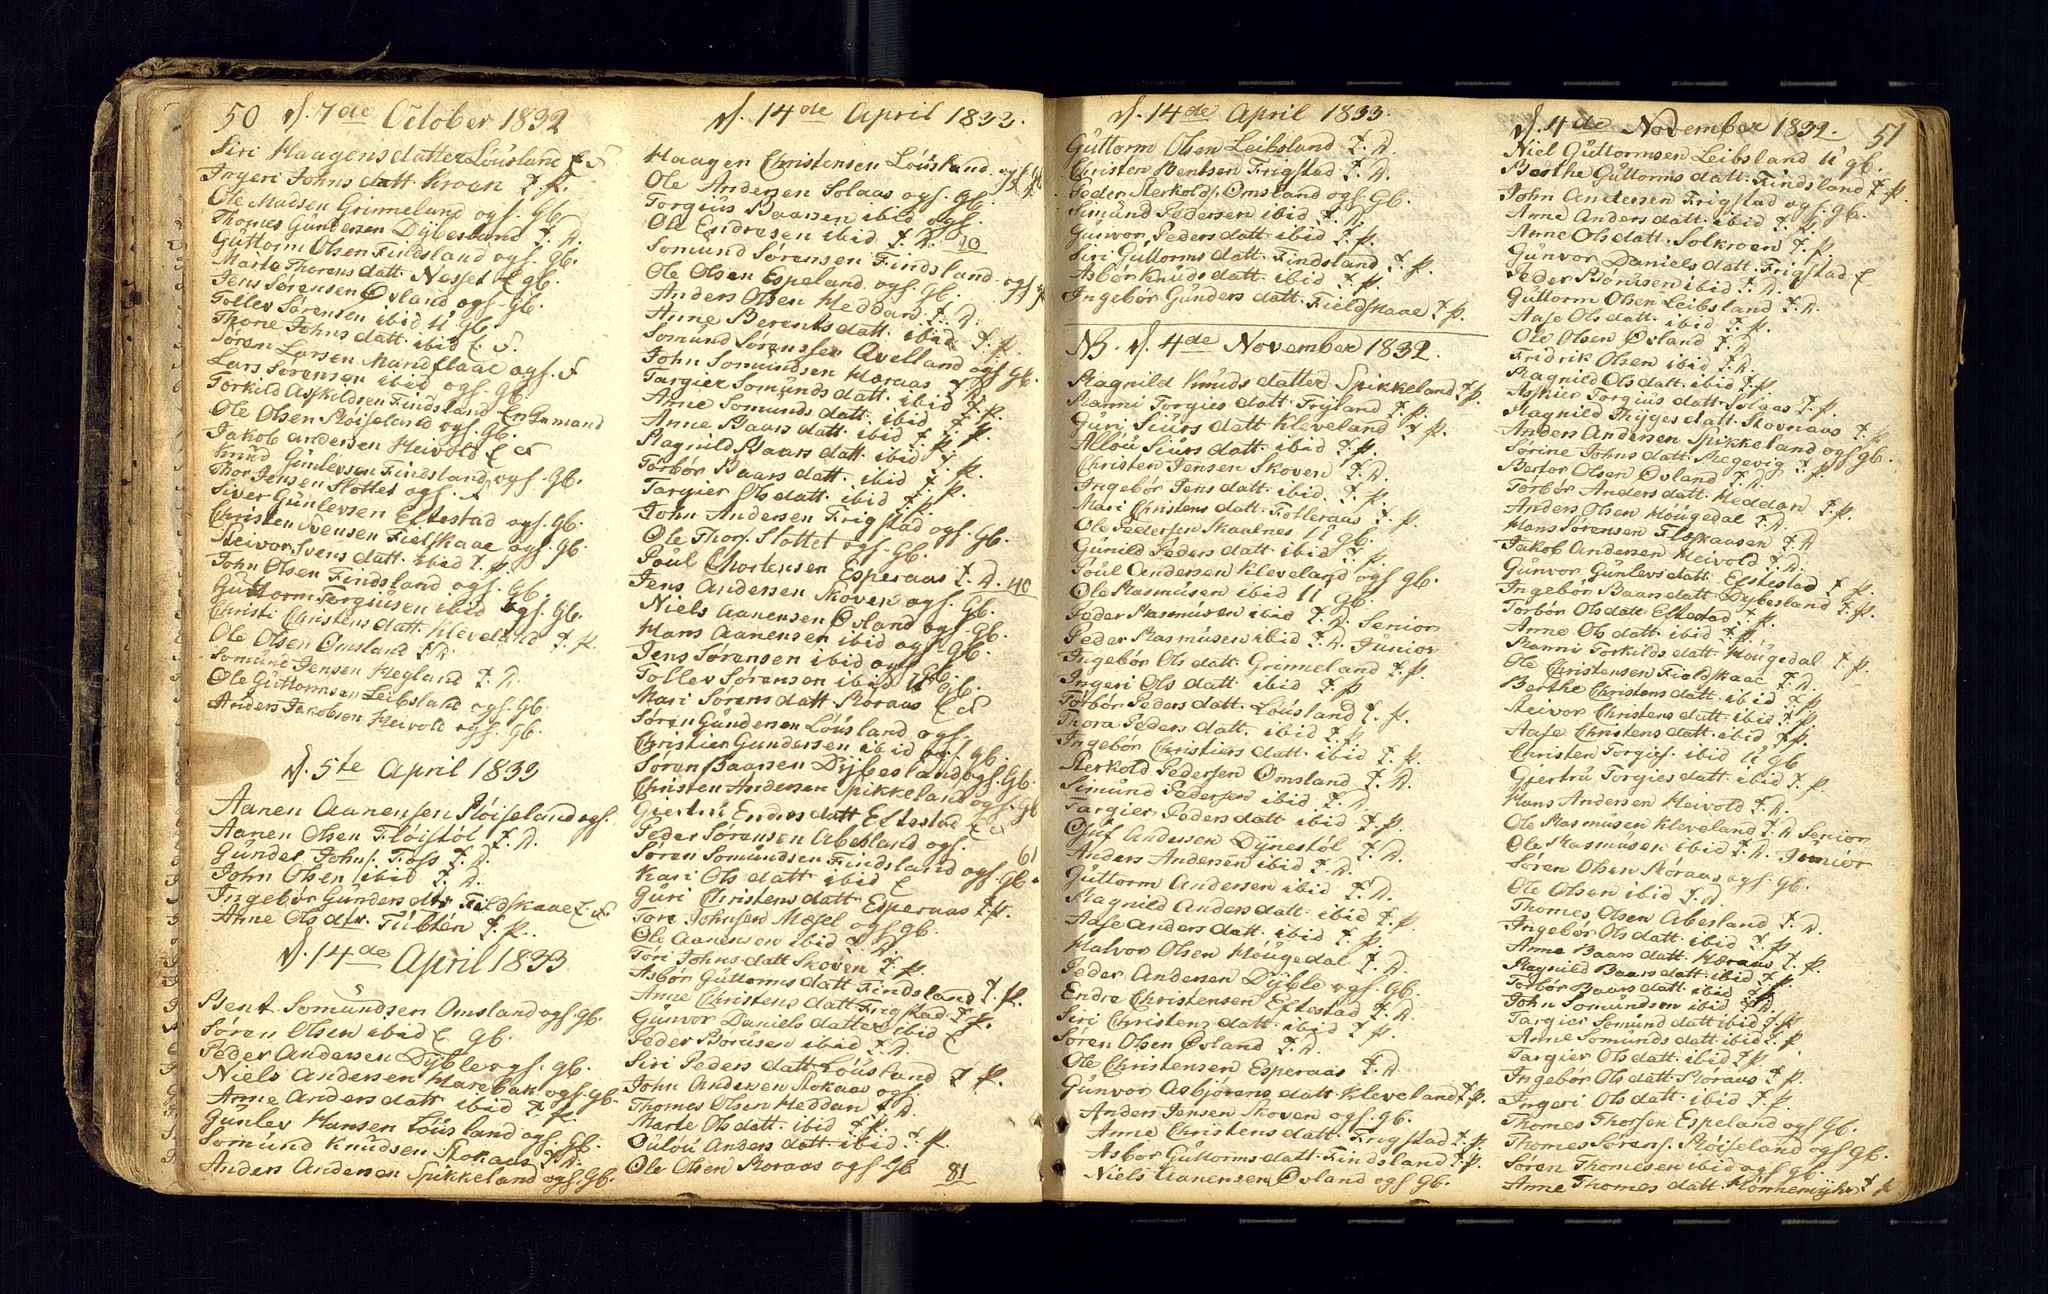 50 d. 7de October 1832
Siri Haagensdatter Lóusland E F
Ingeri Johns datt. Kroen T. P.
Ole Madsen Grinneland ogf. Gb.
Thomes Gundersen Dybesland T. D.
Guttorm Olsen Findsland ogf. Gb.
Marte Thorens datt. Nosset E gb.
Jens Sørensen Øvland ogf. Gb.
Tollev Sørensen ibid U Gb.
Thone Johns datt. ibid E F.
Søren Larsen Mandflaae ogf. F
Lars Sørensen ibid ogf. Gb.
Torkild Askildsen Findsland En Gamand
Ole Olsen Røiseland ogf. Gb.
Jakob Andersen Heivold E F
Knud Gunlevsen Findsland ogf. Gb.
Thor Jensen Slottet ogf. F
Siver Gunlevsen Eftestad ogf. Gb.
Christen Svensen Fielskaae ogf. Gb.
Reivor Svens datt. ibid T. P.
John Olsen Findsland ogf. Gb.
Guttorm Torgiusen ibid ogf. Gb.
Christi Christens datt. Kleveland T. P.
Ole Olsen Omsland T. D.
Somund Jensen Hegland T. D.
Ole Guttormsen Leibsland ogf. Gb.
Anders Jakobsen Heivold ogf. Gb.
d. 5te April 1833
Aanen Aanensen Røiseland ogf.
Aanen Olsen Fløistøl T. D.
Gunder Johns. Foss T. D.
John Olsen ibid T. D.
Ingebør Gunders dtr Fieldskaae E F
Anne Ols dtr. T. P.
d. 14de April 1833
Bent Somundsen Omsland ogf. Gb.
Søren Olsen ibid E gb.
Peder Andersen Dyblevogf. gb.
Niels Andersen Harebak ogf. gb.
Anne Anders datt. ibid T. P.
Gunlev Hansen Lóusland ogf. Gb.
Somund Knudsen Stokaas T. D.
Anders Andersen Spikkeland ogf. Gb.
d. 14de April 1833.
Haagen Christensen Lóusland ogf. Gb
Ole Andersen Solaas ogf. Gb.
Torgius Baarsen ibid ogf.
Ole Endresen ibid T. D. 10
Somund Sørensen Findsland ogf.
Ole Olsen Espeland ogf. Gb.
Anders Olsen Heddan T. D.
Anne Berents datt. ibid T. P.
Somund Sørensen Avelland ogf. Gb.
John Somundsen Heraas T. D.
Targier Somunds datt. ibid T. P.
Anne Somunds datt. ibid T. P.
Anne Baars datt. ibid T. P.
Ragnild Baars datt. ibid T. P.
Torbør Baars datt. ibid T. P.
Targier Ols datt. ibid T. P.
John Andersen Frigstad ogf. Gb.
Ole Thors. Slottet ogf. Gb.
Poul Chortensen Esperaas T. D. 40
Jens Andersen Skoven ogf. Gb.
Niels Aanensen Øvland ogf. Gb.
Hans Aanensen ibid ogf. Gb.
Jens Sørensen ibid ogf. Gb.
Tollev Sørensen ibid U gb.
Mari Sørens datt. Roraas E F
Søren Gundersen Lóusland ogf.
Christien Gundersen ibid ogf. gb.
Søren Baarsen Dybesland ogf. Gb.
Christen Andersen Spikkeland ogf. Gb
Giertru Endres datt. Eftestad E F
Peder Sørensen Abesland ogf.
Søren Somundsen Findsland ogf. Gb.
Kari Ols datt ibid E
Guri Christens datt. Esperaas T. P.
Tore Johnsen Mosel ogf gb.
Ole Aanensen ibid T. D.
Tori Johns datt Skoven T. P.
Asbør Guttorms datt Findsland T. P.
Anne Christens datt Frigstad T. P.
Gunvor Daniels datter ibid E
Peder Børusen ibid T. D.
Siri Peders datt. Lóusland T. P.
John Andersen Stokaas ogf.
Thomes Olsen Heddan T. D.
Marte Ols datt. ibid T. P.
Oulou Anders datt. ibid T. P.
Ole Olsen Roraas ogf Gb 81
d. 14de April 1833.
Guttorm Olsen Leibsland T. D.
Christen Bentsen Frigstad T. D.
Peder Rerkolds. Omsland ogf Gb.
Simund Pedersen ibid T. D.
Gunvor Peders datt. ibid T. P.
Siri Guttorms datt. Findsland T. P.
Asbør Knuds datt. ibid T. P.
Ingebør Gunders datt. Fieldskaae T. P.
NB. d. 4de November 1832.
Ragnild Knuds datter Spikkeland T. P.
Ranni Torgies datt. Tryland T. P.
Guri Siurs datt. Kleveland T. P.
Allou Siurs datt. ibid T. P.
Christen Jensen Skoven T. D.
Ingebør Jens datt. ibid T. P.
Mari Christens datt. Tolleraas T. P.
Ole Pedersen Skaalnes U gb.
Gunild Peders datt. ibid T. P.
Poul Andersen Kleveland ogf gb.
Ole Rasmusen ibid U gb.
Peder Rasmusen ibid T. D. Senior
Peder Rasmusen ibid T. D. Junior
Ingebør Ols datt. Grinneland T. P.
Ingeri Ols datt. ibid T. P.
Torbør Peders datt. Lóusland T. P.
Thora Peders datt. ibid T. P.
Ingebør Christiers datt. ibid T. P.
Rerkold Pedersen Omsland T. D.
Simund Pedersen ibid T. D.
Targier Peders datt. ibid T. P.
Oluf Andersen Dynestøl T. D.
Anders Andersen ibid T. D.
Guttorm Andersen ibid T. D.
Ragnild Anders datt. ibid T. P.
Aase Anders datt. ibid T. P.
Halvor Olsen Hougedal T. D.
Peder Andersen Dyble ogf. Gb.
Endre Christensen Eftestad T. D.
Siri Christens datt. ibid T. P.
Søren Olsen Øvland T. D.
Ole Christensen Esperaas T. D.
Gunvor Asbjørens datt Kleveland T. P.
Anders Jensen Skoven ogf. Gb.
Anne Christens datt. Frigstad T. P.
Asbør Guttorms datt. Findsland T. P.
Niels Aanensen Øvland ogf Gb.
d. 4de November 1832. 51
Niel Guttormsen Leibsland U gb.
Berthe Guttorms datt. Findsland T. P.
John Andersen Frigstad ogf. Gb.
Anne Anders datt. ibid T. P.
Anne Ols datt. Solkroen T. P.
Gunvor Daniels datt. Frigstad E
Peder Børusen ibid T. D.
Guttorm Olsen Leibsland T. D.
Aase Ols datt. ibid T. P.
Ole Olsen Øvland T. D.
Fridrik Olsen ibid T. D.
Ragnild Ols datt. ibid T. P.
Askier Torgius datt. Solaas T. P.
Ragnild Tygges datt. Rovnaas T. P.
Anders Andersen Spikkeland ogf gb.
Sørine Johns datt. Regevig T. P.
Bertor Olsen Øvland T. D.
Torbør Anders datt. Heddan T. P.
Anders Olsen Hougedal T. D.
Hans Sørensen Floskaasen T. D.
Jakob Andersen Heivold T. D.
Gunvor Gunlevs datt. Eftestad T. P.
Ingebør Baars datt. Dybesland T. P.
Torbør Ols datt. Eftestad T. P.
Anne Ols datt. ibid T. P.
Ranni Torkilds datt. Hougedal T. P.
Ole Christensen Fieldskaae T. D.
Berthe Christens datt. ibid T. P.
Reivor Christens datt. ibid T. P.
Aase Christens datt. ibid T. P.
Christen Torgies. ibid U gb
Gjertru Torgies datt. ibid T. P.
Hans Andersen Heivold T. D.
Ole Rasmusen Kleveland T. D Senior
Ole Rasmusen ibid T. D. Junior
Søren Olsen Roraas ogf. Gb.
Ole Olsen ibid T. D.
Thomes Olsen Abesland T. D.
Ingebør Ols datt. ibid T. P.
Anne Baars datt. Heraas T. P.
Ragnild Baars datt. ibid T. P.
Torbør Baars datt. ibid T. P.
John Somundsen ibid T. D.
Targier Somund datt. ibid T. P.
Anne Somunds datt. ibid T. P.
Targier Ols datt. ibid T. P.
Ingebør Ols datt. Roraas T. P.
Ingeri Ols datt. ibid T. P.
Thomes Thorsen Espeland ogf Gb.
Thomes Sørens. Røiseland ogf Gb.
Søren Thomesen ibid ogf gb.
Anne Thomes datt. Hønnemyhr T. P.